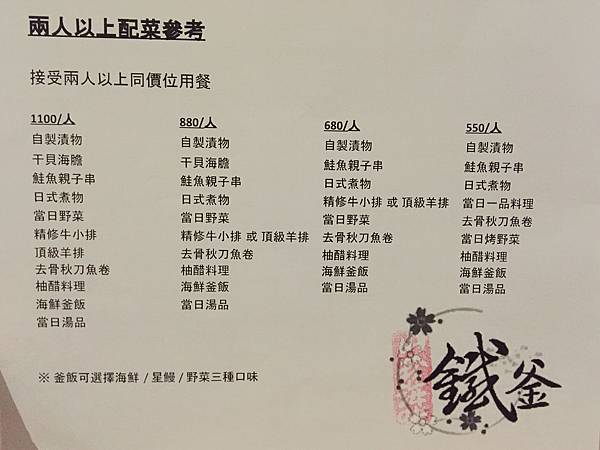 兩人以上配菜參考
接受兩人以上同價位用餐
1100/人
自製漬物
干貝海膽
鮭魚親子串
日式煮物
當日野菜
精修牛小排
頂級羊排
去骨秋刀魚卷
柚醋料理
海鮮釜飯
當日湯品
880/人
自製漬物
干貝海膽
鮭魚親子串
日式煮物
當日野菜
精修牛小排 或 頂級羊排
去骨秋刀魚卷
柚醋料理
海鮮釜飯
當日湯品
680/人
自製漬物
鮭魚親子串
日式煮物
精修牛小排 或 頂級羊排
當日野菜
去骨秋刀魚卷
柚醋料理
海鮮釜飯
當日湯品
550/人
自製漬物
鮭魚親子串
日式煮物
當日一品料理
去骨秋刀魚卷
當日烤野菜
柚醋料理
海鮮釜飯
當日湯品
※ 釜飯可選擇海鮮 / 星鰻 / 野菜三種口味
鐵釜